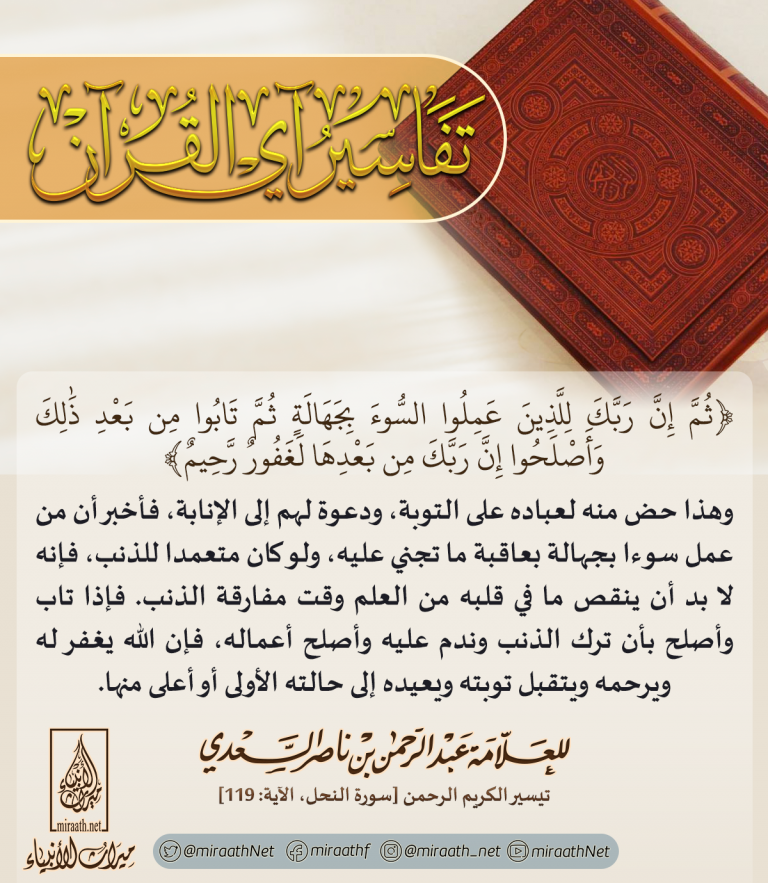 تَفَاسِيرُ آيِ القُرآن
﴿ثُمَّ إِنَّ رَبَّكَ لِلَّذِينَ عَمِلُوا السُّوءَ بِجَهَالَةٍ ثُمَّ تَابُوا مِن بَعْدِ ذَٰلِكَ
وَأَصْلَحُوا إِنَّ رَبَّكَ مِن بَعْدِهَا لَغَفُورٌ رَّحِيمٌ﴾
وهذا حض منه لعباده على التوبة، ودعوة لهم إلى الإنابة، فأخبر أن من
عمل سوءا بجهالة بعاقبة ما تجني عليه، ولو كان متعمدا للذنب، فإنه
لا بد أن ينقص ما في قلبه من العلم وقت مفارقة الذنب. فإذا تاب
وأصلح بأن ترك الذنب وندم عليه وأصلح أعماله، فإن الله يغفر له
ويرحمه ويتقبل توبته ويعيده إلى حالته الأولى أو أعلى منها.
للعلّامة عبد الرحمٰن بن ناصر السعدي
تيسير الكريم الرحمن [سورة النحل، الآية: 119]
ميراث الأنبياء
miraath.net
ميراث الأنبياء
@miraathNet miraathf @miraath_net miraathNet